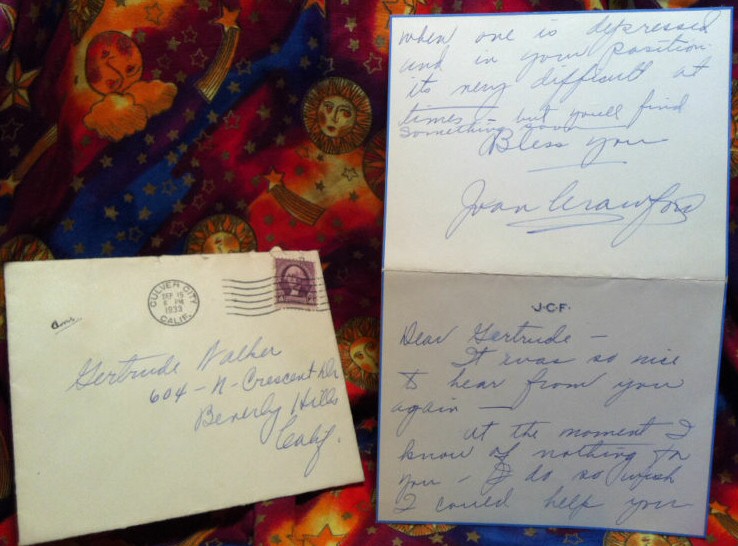 CULVER CITY
SEP 15
6 PM
1933
CALIF.
Gertrude Walker
604-N-Crescent Dr
Beverly Hills
Calif.
J·C·F·
Dear Gertrude -
It was so nice
to hear from you
again -
At the moment I
know of nothing for
you - I do so wish
I could help you
when one is depressed
and in your position.
its very difficult at
times - but you'll find
something soon
Bless you
Joan Crawford